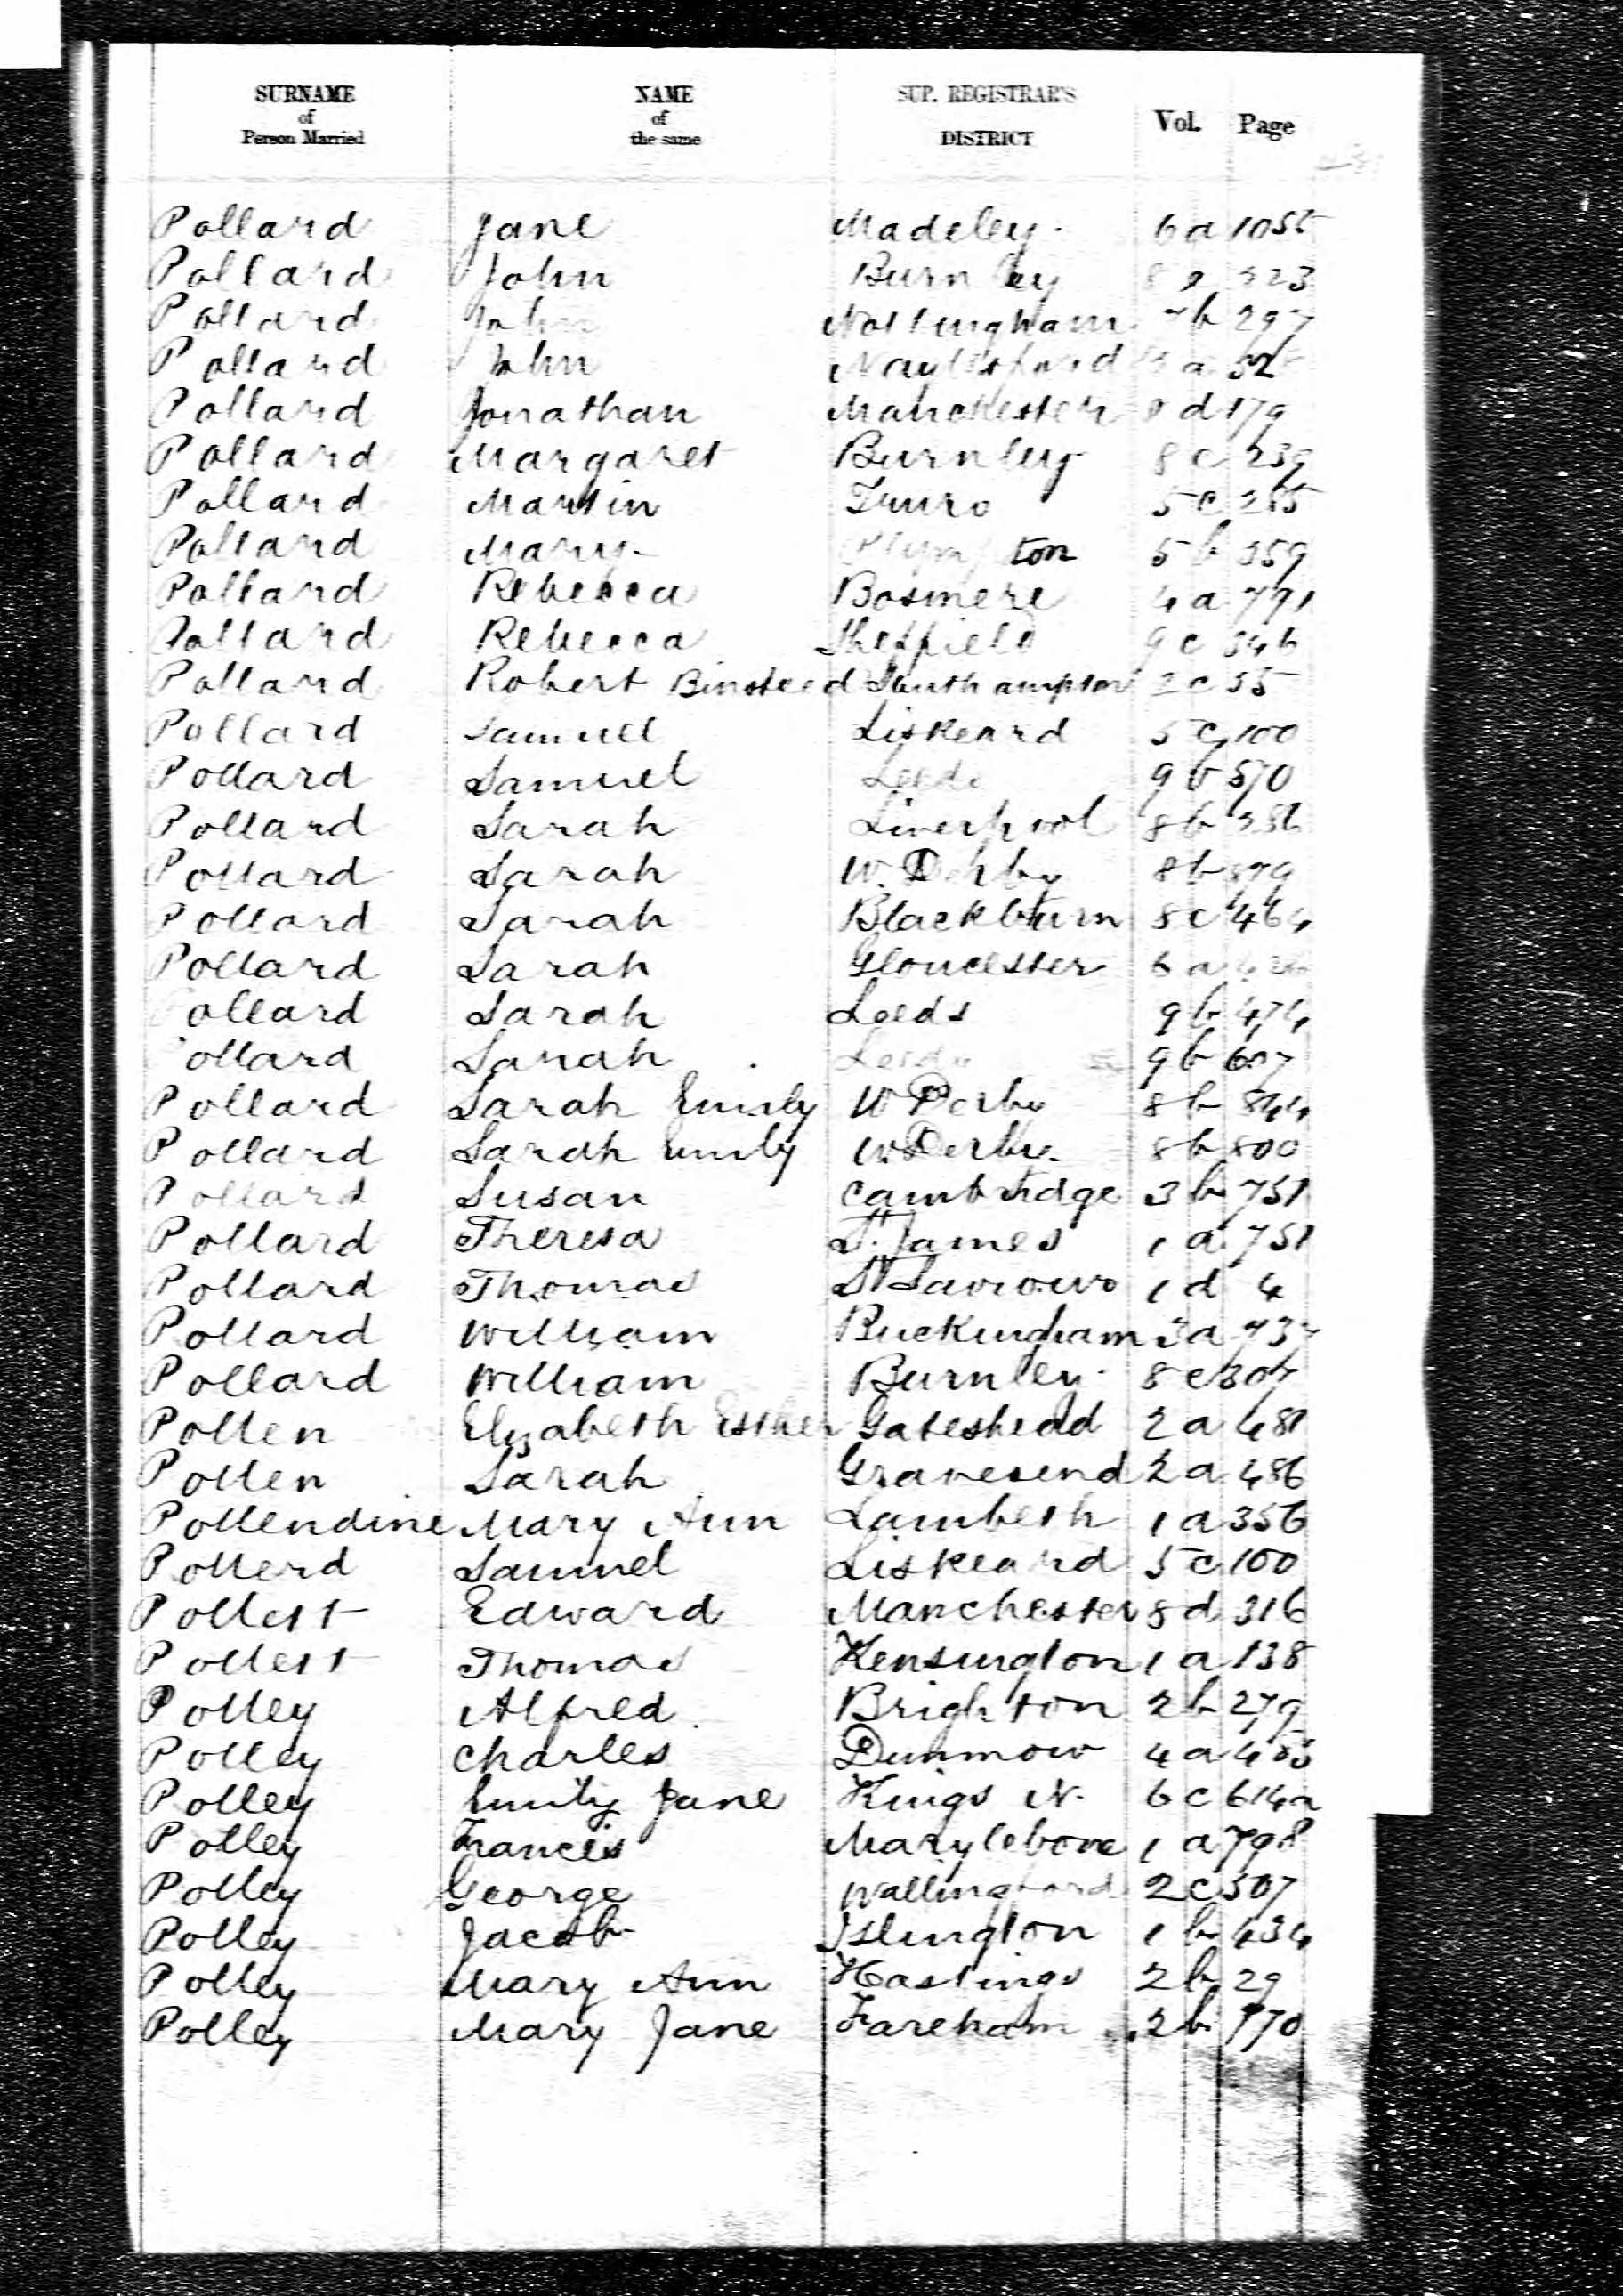 SURNAME of Person Married NAME of the same SUP. REGISTRAR'S DISTRICT Vol. Page
Pollard Jane Madeley 6 a 1055
Pollard John Burnley 8 323
Pollard John Nottingham 7 b 297
Pollard John a
Pollard Jonathan Manchester 8 d 179
Pollard Margaret Burnley 8 c 239
Pollard Martin Truro 5 c
Pollard Mary Plympton 5 b 359
Pollard Rebecca Bosmere 4 a 791
Pollard Rebecca Sheffield 9 c 346
Pollard Robert Binsteed Southampton 2 c 55
Pollard Samuel Liskeard 5 c 100
Pollard Samuel Leeds 9 b 570
Pollard Sarah Liverpool 8 b
Pollard Sarah W. Derby 8 b
Pollard Sarah Blackburn 8 c 464
Pollard Sarah Gloucester 6 a
Pollard Sarah Leeds 9 b 474
Pollard Sarah Leeds 9 b 607
Pollard Sarah Emily W Derby 8 b 844
Pollard Sarah Emily W Derby 8 b 800
Pollard Susan Cambridge 3 b 751
Pollard Theresa St. James 1 a 751
Pollard Thomas St Saviours 1 d 4
Pollard William Buckingham 3 a 737
Pollard William Burnley 8 c 307
Pollen Elizabeth Esther Gateshead 2 a 481
Pollen Sarah Gravesend 2 a 486
Pollendine Mary Ann Lambeth 1 a 356
Pollerd Samuel Liskeard 5 c 100
Pollett Edward Manchester 8 d 316
Pollett Thomas Kensington 1 a 138
Polley Alfred Brighton 2 b 279
Polley Charles Dunmow 4 a
Polley Emily Jane Kings N. 6 c 614a
Polley Francis Marylebone 1 a 798
Polley George Wallingford 2 c 507
Polley Jacob Islington 1 b 434
Polley Mary Ann Hastings 2 b 29
Polley Mary Jane Fareham 2 b 770